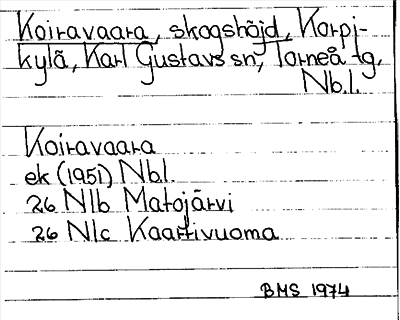 Koiravaara, skogshöjd, Korpi-
kylä, Karl Gustavs sn, Torneå tg,
Nb.l.
Koiravaara
ek (1951) Nbl.
26 Nlb Matojärvi
26 Nlc Kaartivuoma
BMS 1974